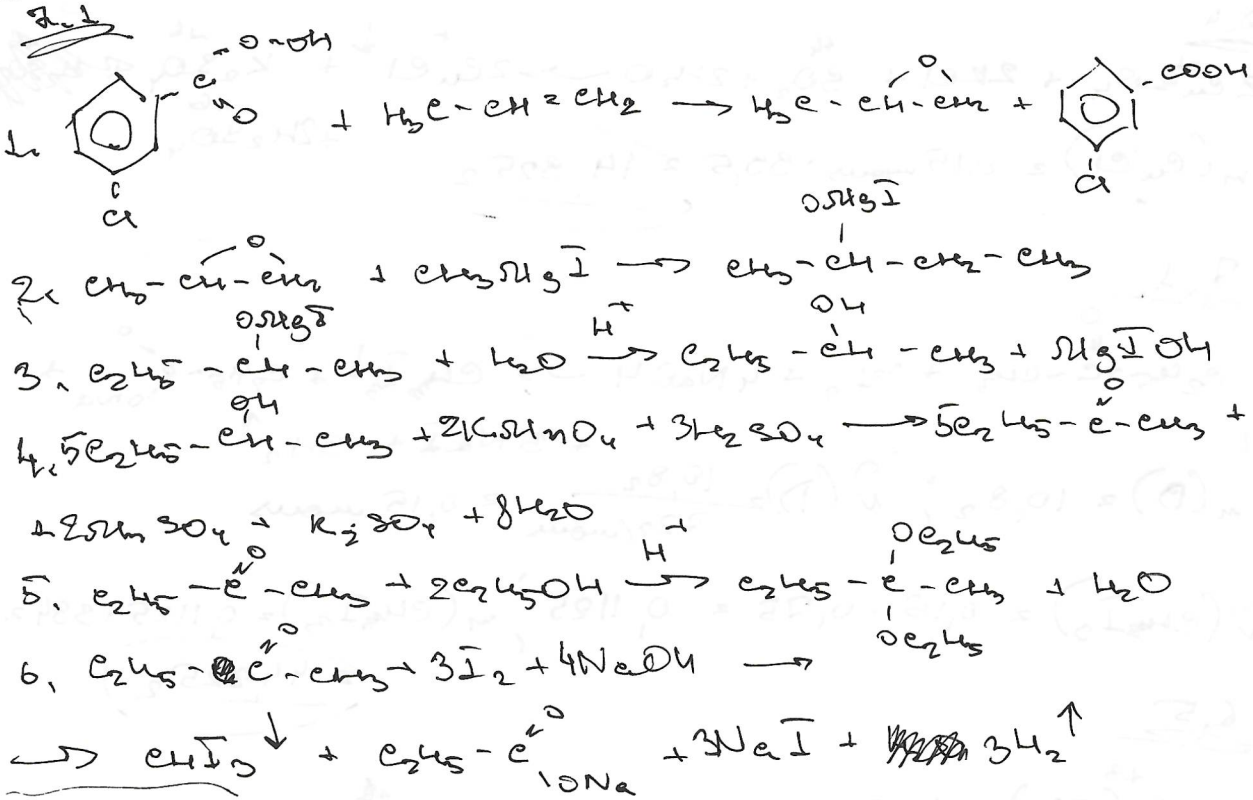 7.1
1. C6H4(Cl)-C(=O)-O-OH + H3C-CH=CH2 → H3C-CH(O)CH2 + C6H4(Cl)-COOH
2. CH3-CH(O)CH2 + CH3MgI → CH3-CH(OMgI)-CH2-CH3
3. C2H5-CH(OMgI)-CH3 + H2O →(H+) C2H5-CH(OH)-CH3 + MgIOH
4. 5C2H5-CH(OH)-CH3 + 2KMnO4 + 3H2SO4 → 5C2H5-C(=O)-CH3 +
+ 2MnSO4 + K2SO4 + 8H2O
5. C2H5-C(=O)-CH3 + 2C2H5OH →(H+) C2H5-C(OC2H5)(OC2H5)-CH3 + H2O
6. C2H5-C(=O)-CH3 + 3I2 + 4NaOH →
→ CHI3↓ + C2H5-C(=O)ONa + 3NaI + 3H2↑